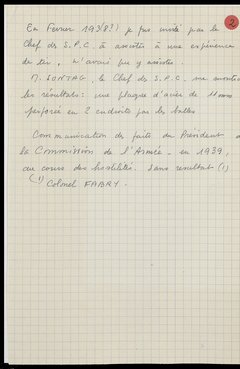 2
En Fevrier 193(8?) je fus invité par le
Chef des S.P.C. à assister à une expérience
de tir, n'avais pu y assister.
M. SONTAG, le Chef des S.P.C. me montra
les résultats: une plaque d'acier de
perforée en 2 endroits par les balles
Communication des faits au Président
la Commission de l'Armée - en 1939,
au cours des hostilités. Sans résultat (1)
(1) Colonel FABRY.